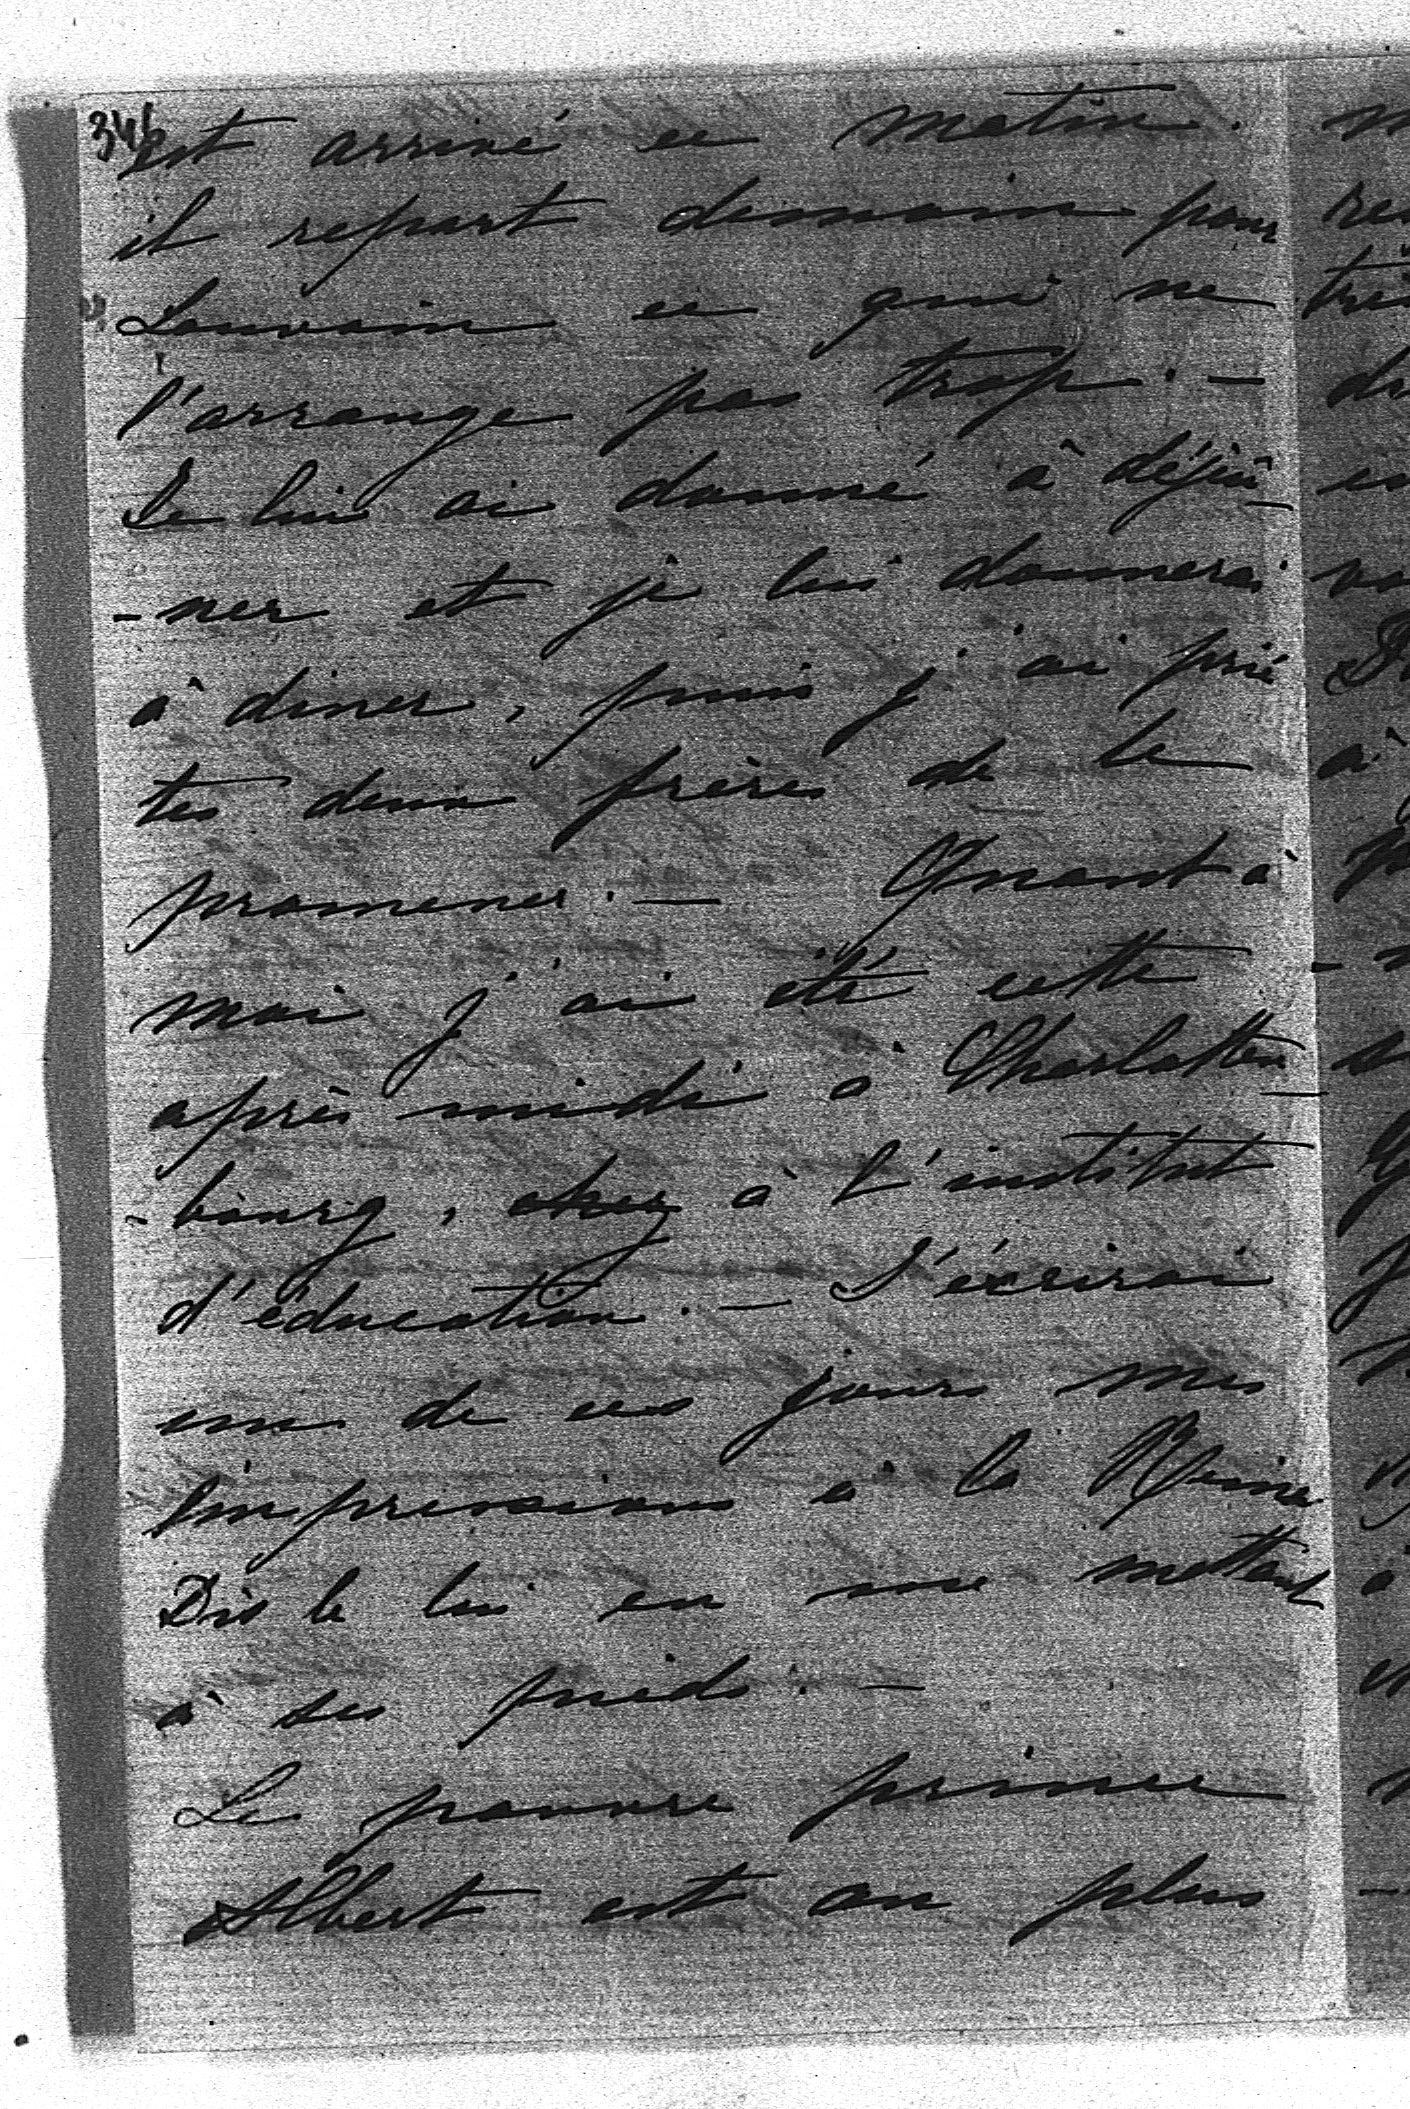 346
est arrivé ce matin.
il repart demain pour
Louvain ce qui ne
l'arrange pas trop. –
Je lui ai donné à déjeû-
-ner et je lui donnerai
à diner, puis j'ai prié
tes deux frères de le
promener. – Quant à
moi j'ai été cette
après midi à Charlotten-
-bourg, chez à l'institut
d'éducation. – J'écrirai
un de ces jours mes
impressions à la Reine
Dis le lui en me mettant
à ses pieds. –
Le pauvre prince
Albert est au plus